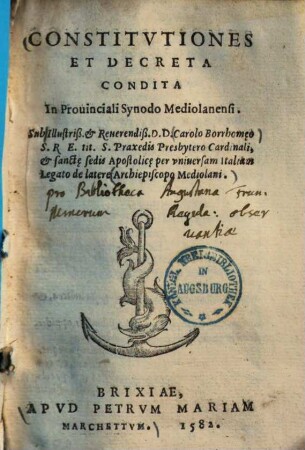 CONSTITVTIONES
ET DECRETA
CONDITA
In Prouinciali Synodo Mediolanensi.
Sub Illustriß. & Reuerendiß. D. D. Carolo Borrhomeo
S. R. E. tit. S. Praxedis Presbytero Cardinali,
& sanctę sedis Apostolicę per vniuersam Italiam
Legato de latere, Archiepiscopo Mediolani.
pro Bibliotheca Augustana Fran-
Regula: obser
uantiæ
KÖNIGL. KREISBIBLIOTHEK
IN
AUGSBURG
BRIXIAE,
APVD PETRVM MARIAM
MARCHETTVM. 1582.